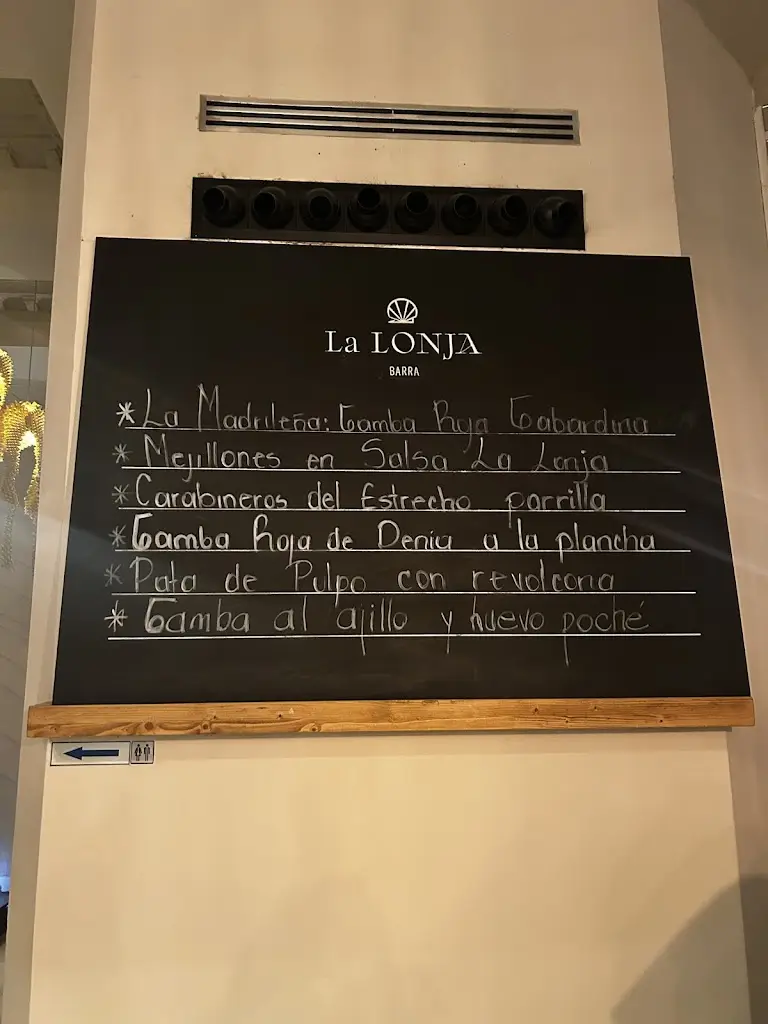 La LONJA
BARRA
*La Madrileña: Gamba Roja Gabardina
*Mejillones en Salsa La Lonja
*Carabineros del Estrecho parrilla
*Gamba Roja de Denia a la plancha
*Pata de Pulpo con revolcona
*Gamba al ajillo y huevo poché